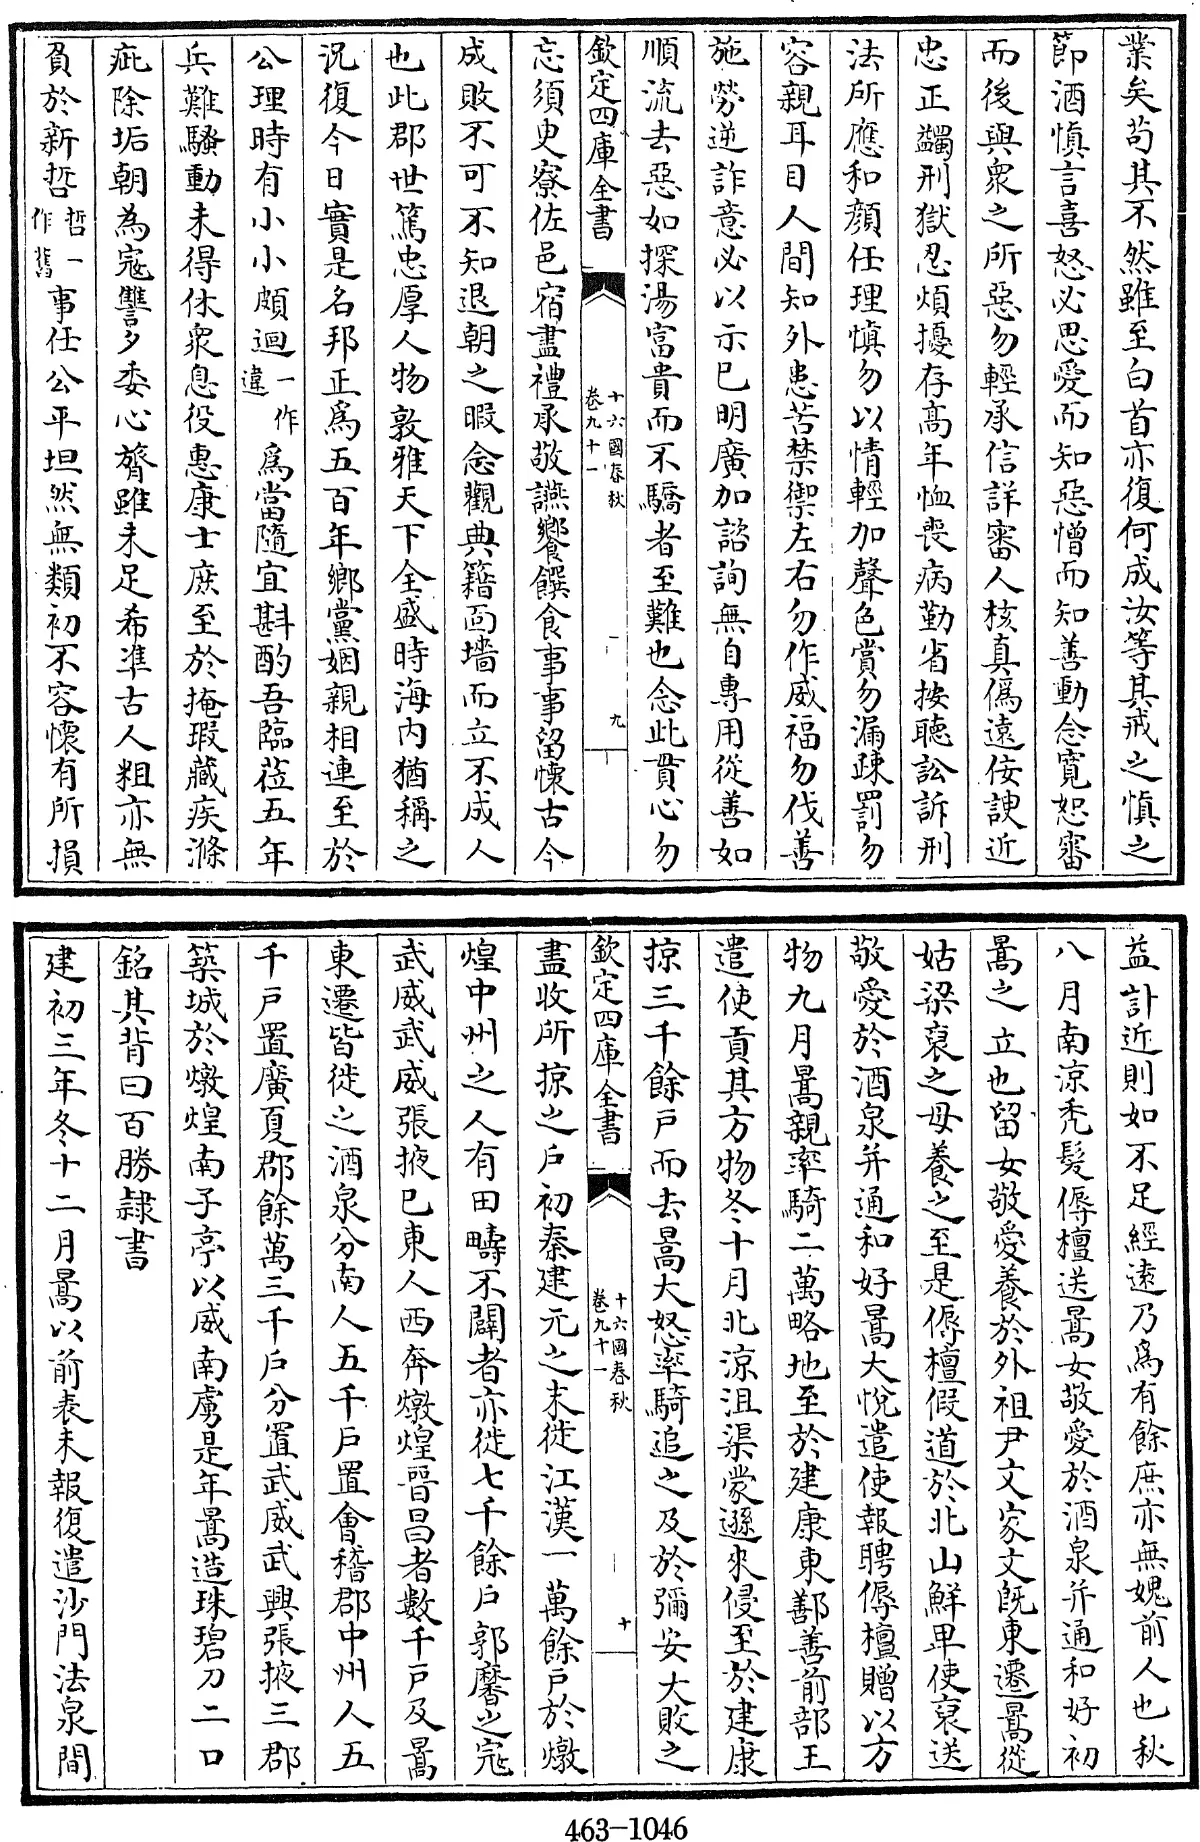 業矣苟其不然雖至白首亦復何成汝等其戒之慎之
節酒慎言喜怒必思愛而知惡憎而知善動念寬恕審
而後與衆之所惡勿輕承信詳審人核真偽遠佞諛近
忠正蠲刑獄忍煩擾存髙年恤喪病勤省按聽訟訴刑
法所應和顔任理慎勿以情輕加聲色賞勿漏疎罰勿
容親耳目人間知外患苦禁禦左右勿作威福勿伐善
施勞逆詐意必以示已明廣加諮詢無自專用從善如
順流去惡如探湯富貴而不驕者至難也念此貫心勿
欽定四庫全書
十六國春秋
卷九十一
九
忘須史寮佐邑宿盡禮承敬讌饗饌食事事留懷古今
成敗不可不知退朝之暇念觀典籍靣墻而立不成人
也此郡世篤忠厚人物敦雅天下全盛時海内猶稱之
况復今日實是名邦正爲五百年鄉黨姻親相連至於
公理時有小小頗迴一作違爲當隨宜斟酌吾臨莅五年
兵難騷動未得休衆息役惠康士庶至於掩瑕藏疾滌
疵除垢朝為寇讐夕委心膂雖未足希準古人粗亦無
負於新哲哲一作舊事任公平坦然無類初不容懷有所損
益計近則如不足經遠乃爲有餘庶亦無媿前人也秋
八月南涼秃髮傉檀送暠女敬愛於酒泉并通和好初
暠之立也留女敬愛養於外祖尹文家文既東遷暠從
姑梁裒之母養之至是傉檀假道於北山鮮卑使裒送
敬愛於酒泉并通和好暠大悅遣使報聘傉檀贈以方
物九月暠親率騎二萬略地至於建康東鄯善前部王
遣使貢其方物冬十月北涼沮渠蒙遜來侵至於建康
掠三千餘戸而去暠大怒率騎追之及於彌安大敗之
欽定四庫全書
十六國春秋
卷九十一
十
盡收所掠之戸初秦建元之末徙江漢一萬餘戸於燉
煌中州之人有田疇不闢者亦徙七千餘戸郭黁之寇
武威武威張掖已東人西奔燉煌晉昌者數千戸及暠
東遷皆徙之酒泉分南人五千戸置會稽郡中州人五
千戸置廣夏郡餘萬三千戸分置武威武興張掖三郡
築城於燉煌南子亭以威南虜是年暠造珠碧刀二口
銘其背曰百勝隸書
建初三年冬十二月暠以前表未報復遣沙門法泉間
463-1046